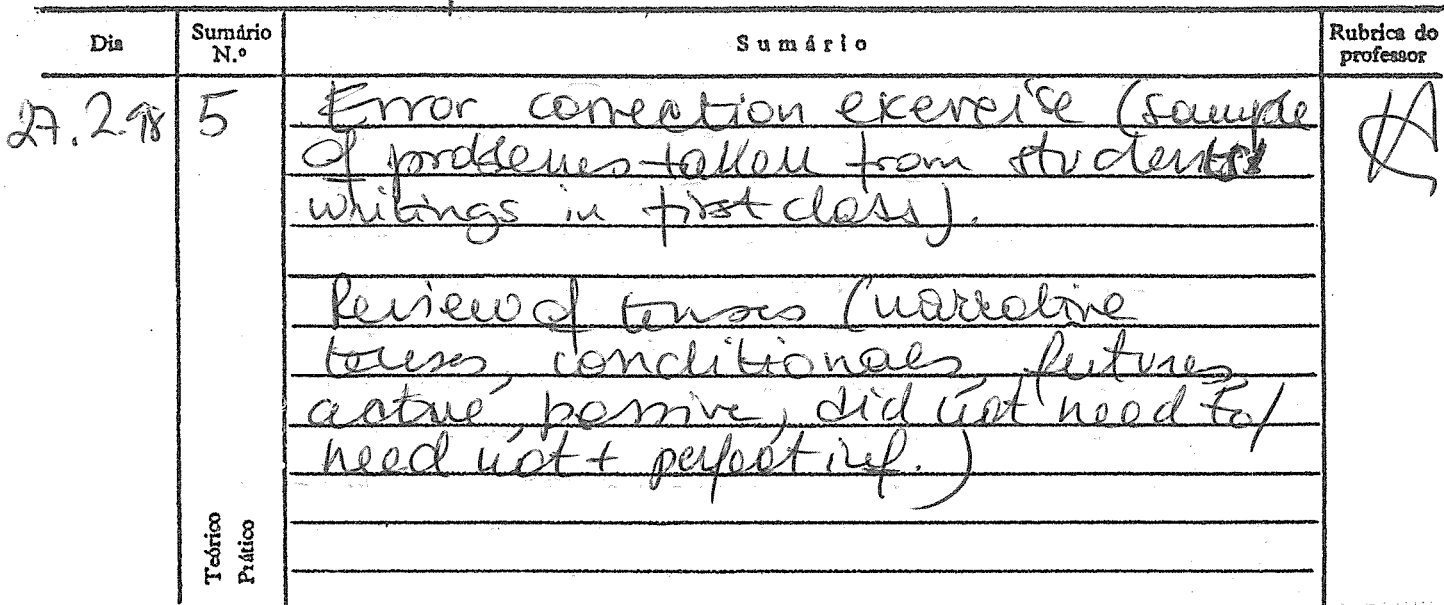 Dia Sumário N.º Sumário Rubrica do professor
27.2.98 5 Error correction exercise (sample
of problems taken from students
writings in first class).
Review of tenses (narrative
tenses, conditionals, futures,
active, passive, did not need to/
need not + perfect inf.)
Teórico
Prático